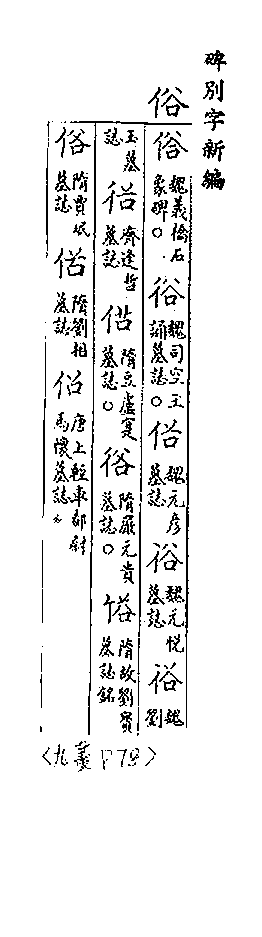 碑別字新編
俗
俗 魏義橋石象碑○ 俗 魏司空王誦墓誌○ 俗 魏元彦墓誌 俗 魏元悅墓誌 俗 魏劉
玉墓誌 俗 齊逢哲墓誌 俗 隋 墓誌○ 俗 隋嚴元貴墓誌○ 俗 隋故劉寶墓誌銘
俗 隋賈珉墓誌 俗 隋劉相墓誌 俗 唐上輕車都尉馬懷墓誌
〈九畫 P79〉